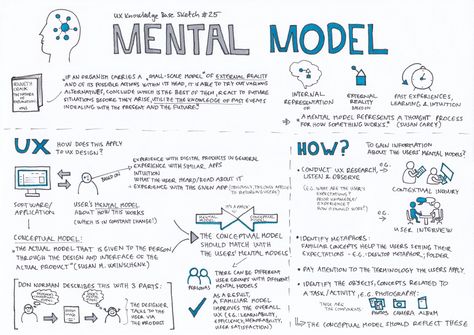 UX Knowledge Base Sketch #25
MENTAL MODEL
KENNETH
CRAIK:
THE NATURE
OF
EXPLANATION
1943
"IF AN ORGANISM CARRIES A "SMALL-SCALE MODEL" OF EXTERNAL REALITY
AND OF ITS POSSIBLE ACTIONS WITHIN ITS HEAD, IT IS ABLE TO TRY OUT VARIOUS
ALTERNATIVES, CONCLUDE WHICH IS THE BEST OF THEM, REACT TO FUTURE
SITUATIONS BEFORE THEY ARISE, UTILIZE THE KNOWLEDGE OF PAST EVENTS
IN DEALING WITH THE PRESENT AND THE FUTURE."
INTERNAL
REPRESENTATION
OF
EXTERNAL
REALITY
BASED ON
PAST EXPERIENCES,
LEARNING & INTUITION
"A MENTAL MODEL REPRESENTS A THOUGHT PROCESS
FOR HOW SOMETHING WORKS." (SUSAN CAREY)
UX
HOW DOES THIS APPLY
TO UX DESIGN?
SOFTWARE/
APPLICATION
BASED ON
EXPERIENCE WITH DIGITAL PRODUCTS IN GENERAL
EXPERIENCE WITH SIMILAR APPS
INTUITION
WHAT THE USER HEARD/READ ABOUT IT
+ EXPERIENCE WITH THE GIVEN APP
USER'S MENTAL MODEL
ABOUT HOW THIS WORKS
(WHICH IS IN CONSTANT CHANGE!)
CONCEPTUAL MODEL:
"THE ACTUAL MODEL THAT IS GIVEN TO THE PERSON
THROUGH THE DESIGN AND INTERFACE OF THE
ACTUAL PRODUCT" (SUSAN M. WEINSCHENK)
IT'S A MATCH
MENTAL
MODEL
CONCEPTUAL
MODEL
THE CONCEPTUAL MODEL
SHOULD MATCH WITH
THE USERS' MENTAL MODELS!
DON NORMAN DESCRIBES THIS WITH 3 PARTS:
THE DESIGNER
TALKS TO THE
USER VIA
THE PRODUCT
PERSONAS
THERE CAN BE DIFFERENT
USER GROUPS WITH DIFFERENT
MENTAL MODELS
AS A RESULT,
A FAMILIAR MODEL
IMPROVES THE OVERALL
UX (E.G. LEARNABILITY,
EFFICIENCY, MEMORABILITY,
USER SATISFACTION)
HOW?
TO GAIN INFORMATION
ABOUT THE USERS' MENTAL MODELS?
• CONDUCT UX RESEARCH,
LISTEN & OBSERVE
(E.G. WHAT ARE THE USER'S
EXPECTATIONS?
PRIOR KNOWLEDGE/
EXPERIENCE?
HOW IT SHOULD WORK?)
E.G.
CONTEXTUAL INQUIRY
E.G.
USER INTERVIEW
• IDENTIFY METAPHORS:
FAMILIAR CONCEPTS HELP THE USERS SETTING THEIR
EXPECTATIONS - E.G. DESKTOP METAPHOR, FOLDER
• PAY ATTENTION TO THE TERMINOLOGY THE USERS APPLY
• IDENTIFY THE OBJECTS, CONCEPTS RELATED TO
A TASK/ACTIVITY, E.G. PHOTOGRAPHY:
THESE ARE
THE COMPONENTS
PHOTOS
CAMERA
ALBUM
THE CONCEPTUAL MODEL SHOULD REFLECT THESE